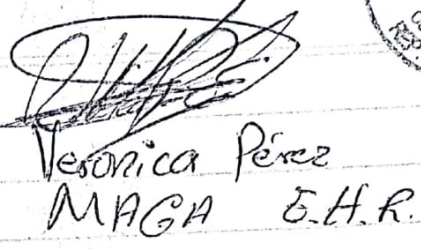 Veronica Pérez
MAGA E.H.R.